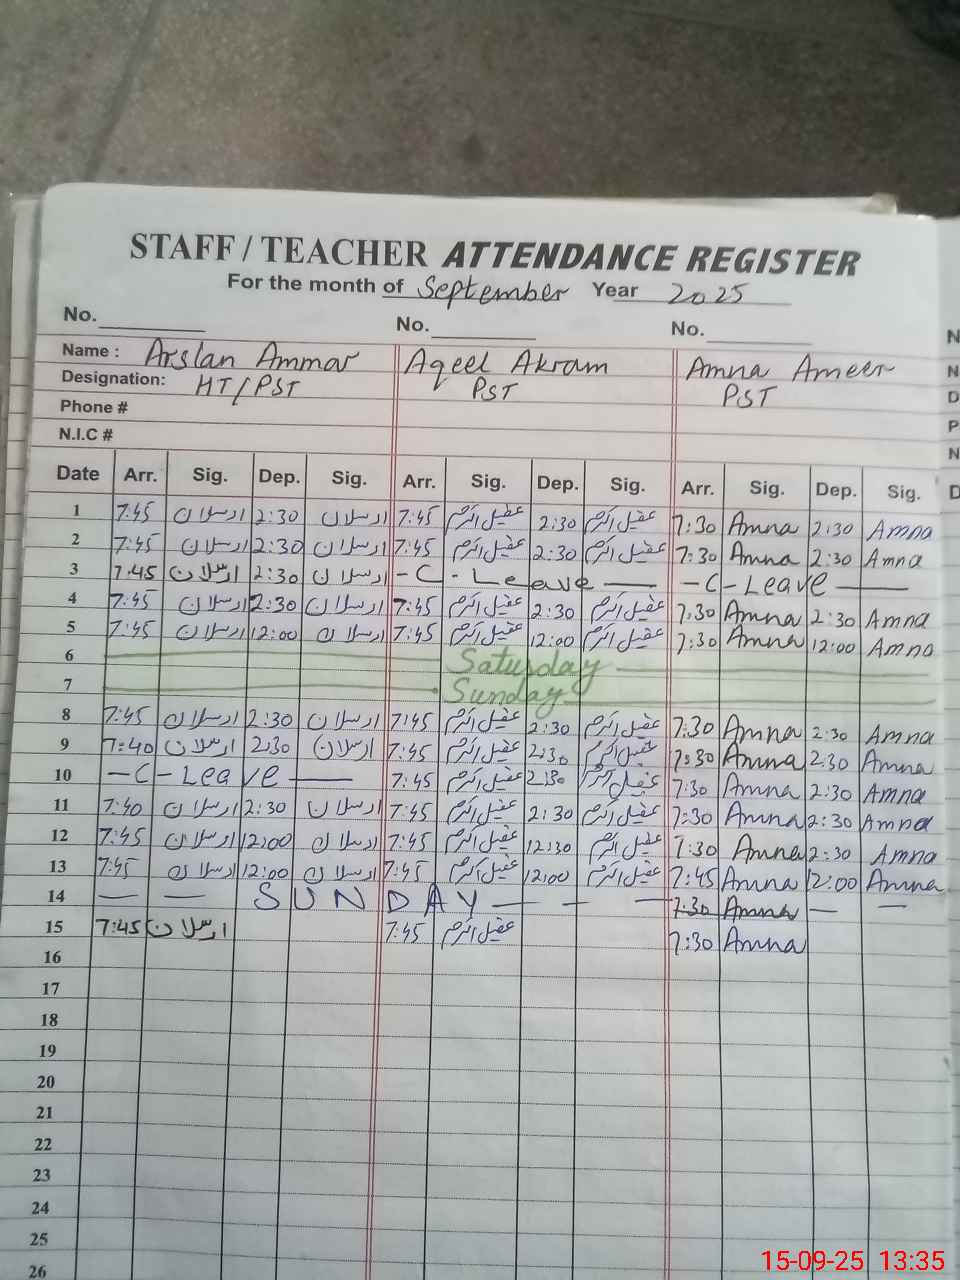 STAFF / TEACHER ATTENDANCE REGISTER
For the month of September Year 2025
No. No. No.
Name : Arslan Ammar Aqeel Akram Amna Ameer
Designation: HT/PST PST PST
Phone #
N.I.C #
Date Arr. Sig. Dep. Sig. Arr. Sig. Dep. Sig. Arr. Sig. Dep. Sig.
1 7:45 ارسلان 2:30 ارسلان 7:45 عقیل اکرم 2:30 عقیل اکرم 7:30 Amna 2:30 Amna
2 7:45 ارسلان 2:30 ارسلان 7:45 عقیل اکرم 2:30 عقیل اکرم 7:30 Amna 2:30 Amna
3 7:45 ارسلان 2:30 ارسلان - C - Leave — - C - Leave —
4 7:45 ارسلان 2:30 ارسلان 7:45 عقیل اکرم 2:30 عقیل اکرم 7:30 Amna 2:30 Amna
5 7:45 ارسلان 12:00 ارسلان 7:45 عقیل اکرم 12:00 عقیل اکرم 7:30 Amna 12:00 Amna
6 Saturday
7 Sunday
8 7:45 ارسلان 2:30 ارسلان 7:45 عقیل اکرم 2:30 عقیل اکرم 7:30 Amna 2:30 Amna
9 7:40 ارسلان 2:30 ارسلان 7:45 عقیل اکرم 2:30 عقیل اکرم 7:30 Amna 2:30 Amna
10 - C - Leave — 7:45 عقیل اکرم 2:30 عقیل اکرم 7:30 Amna 2:30 Amna
11 7:40 ارسلان 2:30 ارسلان 7:45 عقیل اکرم 2:30 عقیل اکرم 7:30 Amna 2:30 Amna
12 7:45 ارسلان 12:00 ارسلان 7:45 عقیل اکرم 12:30 عقیل اکرم 7:30 Amna 2:30 Amna
13 7:45 ارسلان 12:00 ارسلان 7:45 عقیل اکرم 12:00 عقیل اکرم 7:45 Amna 12:00 Amna
14 — — SUNDAY — - — 7:30 Amna — —
15 7:45 ارسلان 7:45 عقیل اکرم 7:30 Amna
16
17
18
19
20
21
22
23
24
25
26
15-09-25 13:35